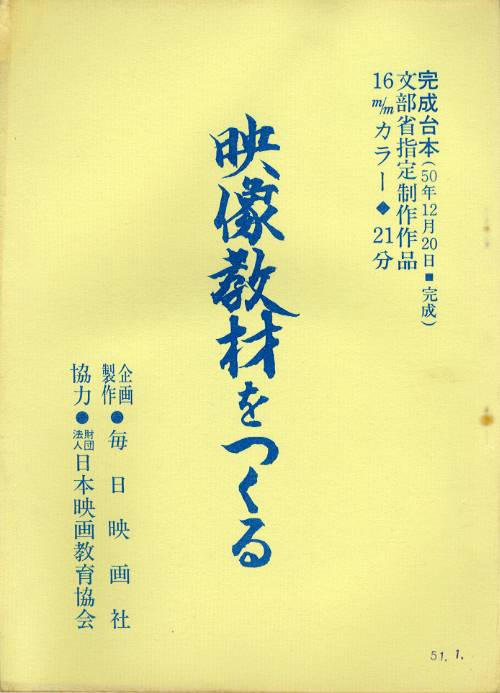 完成台本(50年12月20日■完成)
文部省指定制作作品
16m/mカラー◆21分
映像教材をつくる
企画製作●毎日映画社
協力●財団法人日本映画教育協会
51.1.